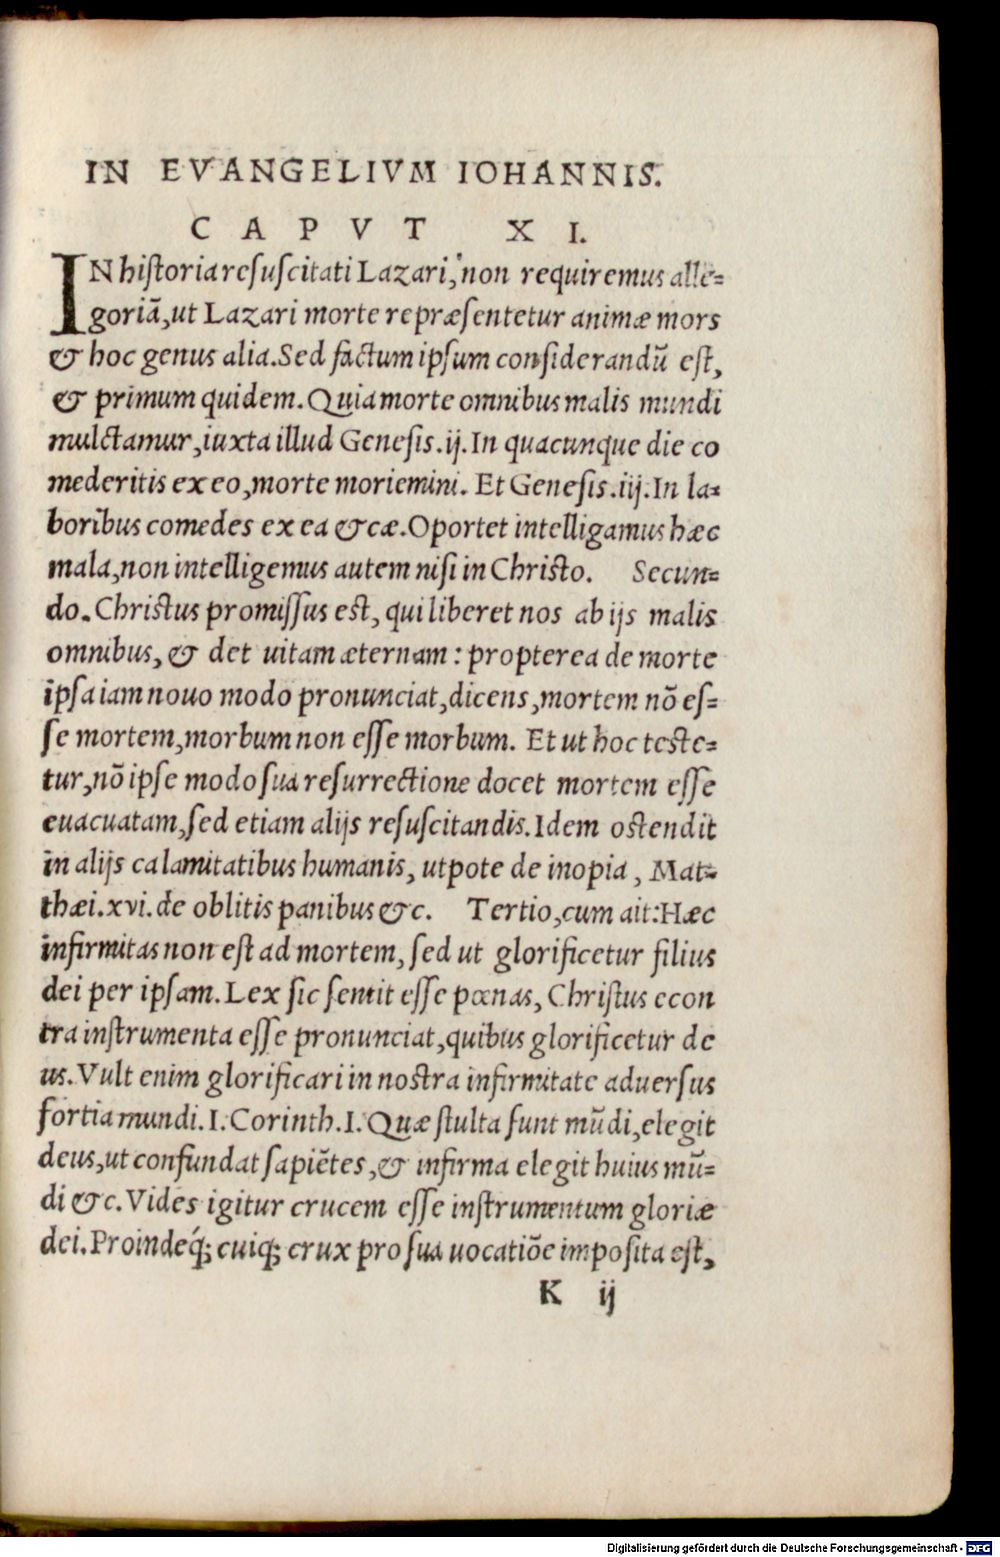 IN EVANGELIVM IOHANNIS.
CAPVT XI.
IN historia resuscitati Lazari, non requiremus alle=
goriā, ut Lazari morte repræsentetur animæ mors
& hoc genus alia. Sed factum ipsum considerandū est,
& primum quidem. Quia morte omnibus malis mundi
mulctamur, iuxta illud Genesis .ij. In quacunque die co
mederitis ex eo, morte moriemini. Et Genesis .iij. In la=
boribus comedes ex ea &cæ. Oportet intelligamus hæc
mala, non intelligemus autem nisi in Christo. Secun=
do. Christus promissus est, qui liberet nos ab ijs malis
omnibus, & det uitam æternam : propterea de morte
ipsa iam nouo modo pronunciat, dicens, mortem nō es=
se mortem, morbum non esse morbum. Et ut hoc teste=
tur, nō ipse modo sua resurrectione docet mortem esse
euacuatam, sed etiam alijs resuscitandis. Idem ostendit
in alijs calamitatibus humanis, utpote de inopia, Mat=
thæi.xvi. de oblitis panibus &c. Tertio, cum ait: Hæc
infirmitas non est ad mortem, sed ut glorificetur filius
dei per ipsam. Lex sic sentit esse pœnas, Christus econ
tra instrumenta esse pronunciat, quibus glorificetur de
us. Vult enim glorificari in nostra infirmitate aduersus
fortia mundi. I. Corinth. I. Quæ stulta sunt mūdi, elegit
deus, ut confundat sapiētes, & infirma elegit huius mū=
di &c. Vides igitur crucem esse instrumentum gloriæ
dei. Proindeq́; cuiq; crux pro sua uocatiōe imposita est,
K ij
Digitalisierung gefördert durch die Deutsche Forschungsgemeinschaft - DFG